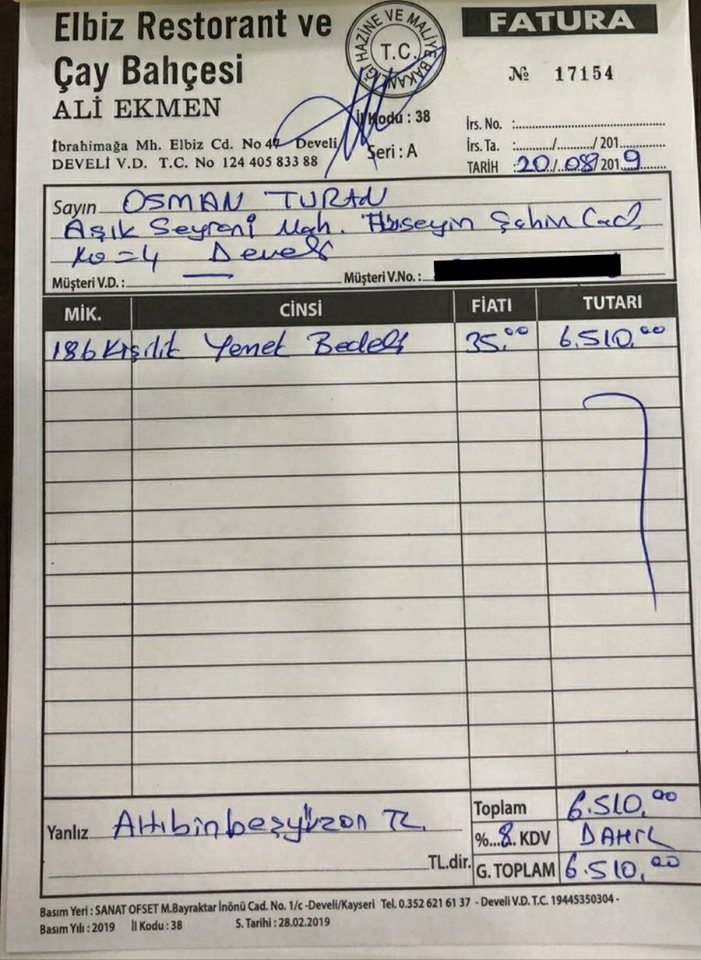 Elbiz Restorant ve
Çay Bahçesi
ALİ EKMEN
İbrahimağa Mh. Elbiz Cd. No 47 Develi
DEVELİ V.D. T.C. No 124 405 833 88
HAZİNE VE MALİYE BAKANLIĞI
T.C.
İl Kodu : 38
Seri : A
FATURA
№ 17154
İrs. No. :
İrs. Ta. : / / 201
TARİH : 20/08/2019
Sayın OSMAN TURAN
Aşık Seyrani Mah. Hüseyin Şahin Cad.
No=4 Develi
Müşteri V.D. : Müşteri V.No. :
MİK. CİNSİ FİATI TUTARI
186 Kişilik Yemek Bedeli 35.00 6.510.00
Yanlız Altıbinbeşyüzon TL.
TL.dir.
Toplam 6.510.00
%..8.. KDV DAHİL
G. TOPLAM 6.510.00
Basım Yeri : SANAT OFSET M.Bayraktar İnönü Cad. No. 1/c -Develi/Kayseri Tel. 0.352 621 61 37 - Develi V.D. T.C. 19445350304 -
Basım Yılı : 2019 İl Kodu : 38 S. Tarihi : 28.02.2019